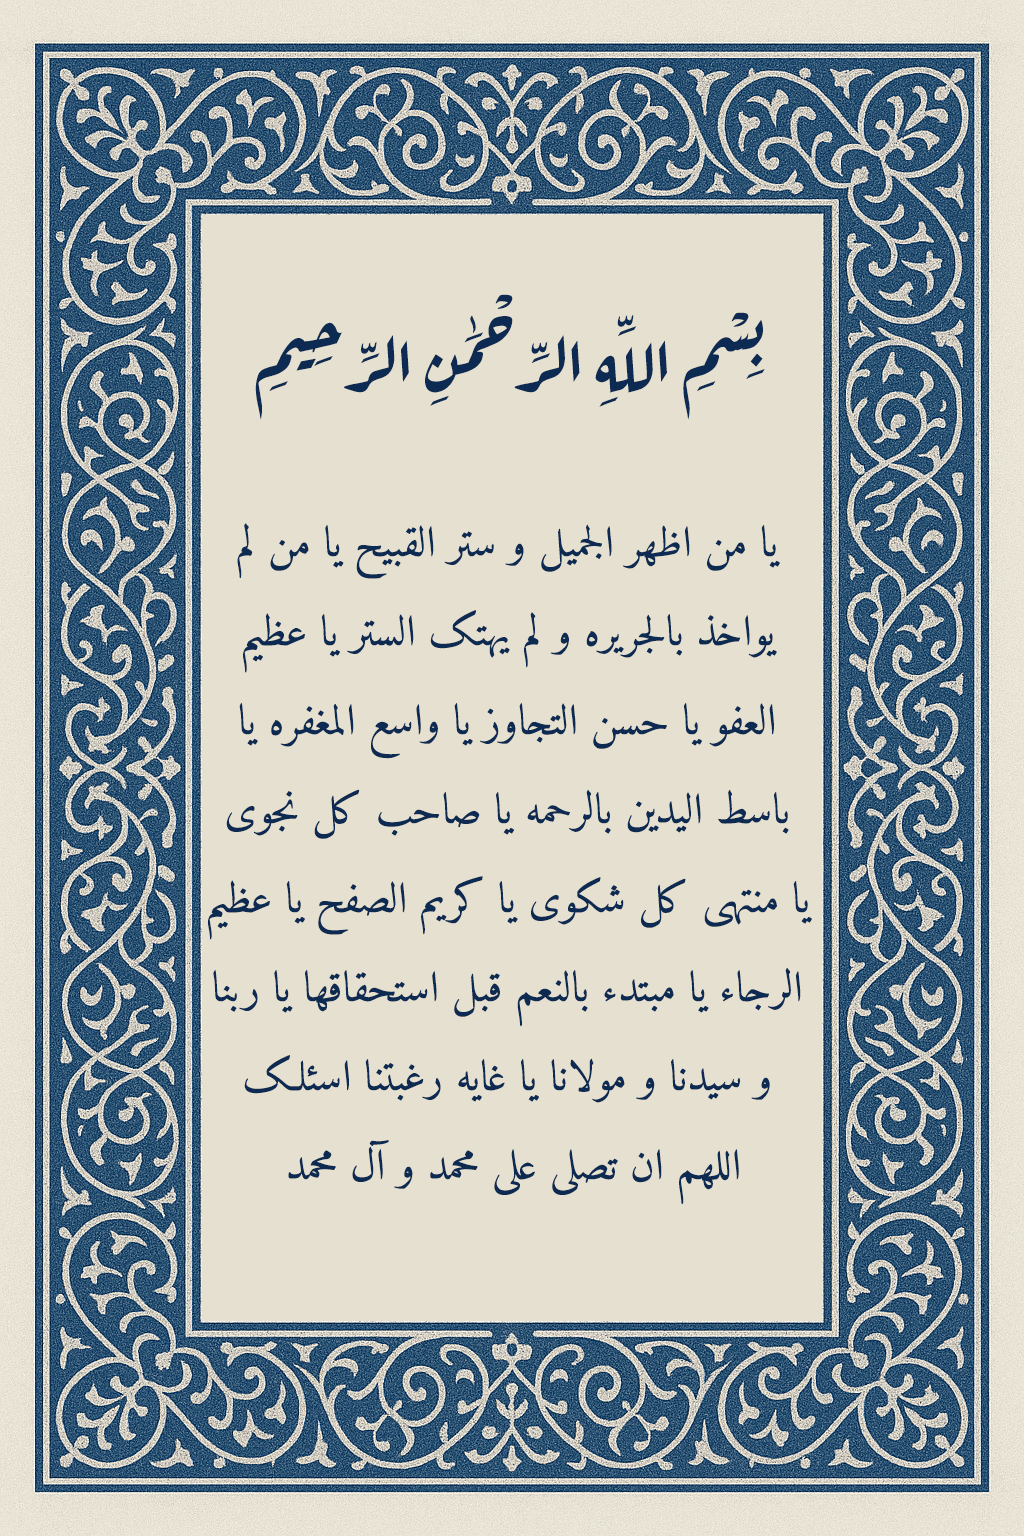 بِسْمِ اللَّهِ الرَّحْمَٰنِ الرَّحِيمِ
یا من اظهر الجمیل و ستر القبیح یا من لم
یواخذ بالجریره و لم یهتک الستر یا عظیم
العفو یا حسن التجاوز یا واسع المغفره یا
باسط الیدین بالرحمه یا صاحب کل نجوی
یا منتهی کل شکوی یا کریم الصفح یا عظیم
الرجاء یا مبتدء بالنعم قبل استحقاقها یا ربنا
و سیدنا و مولانا یا غایه رغبتنا اسئلک
اللهم ان تصلی علی محمد و آل محمد